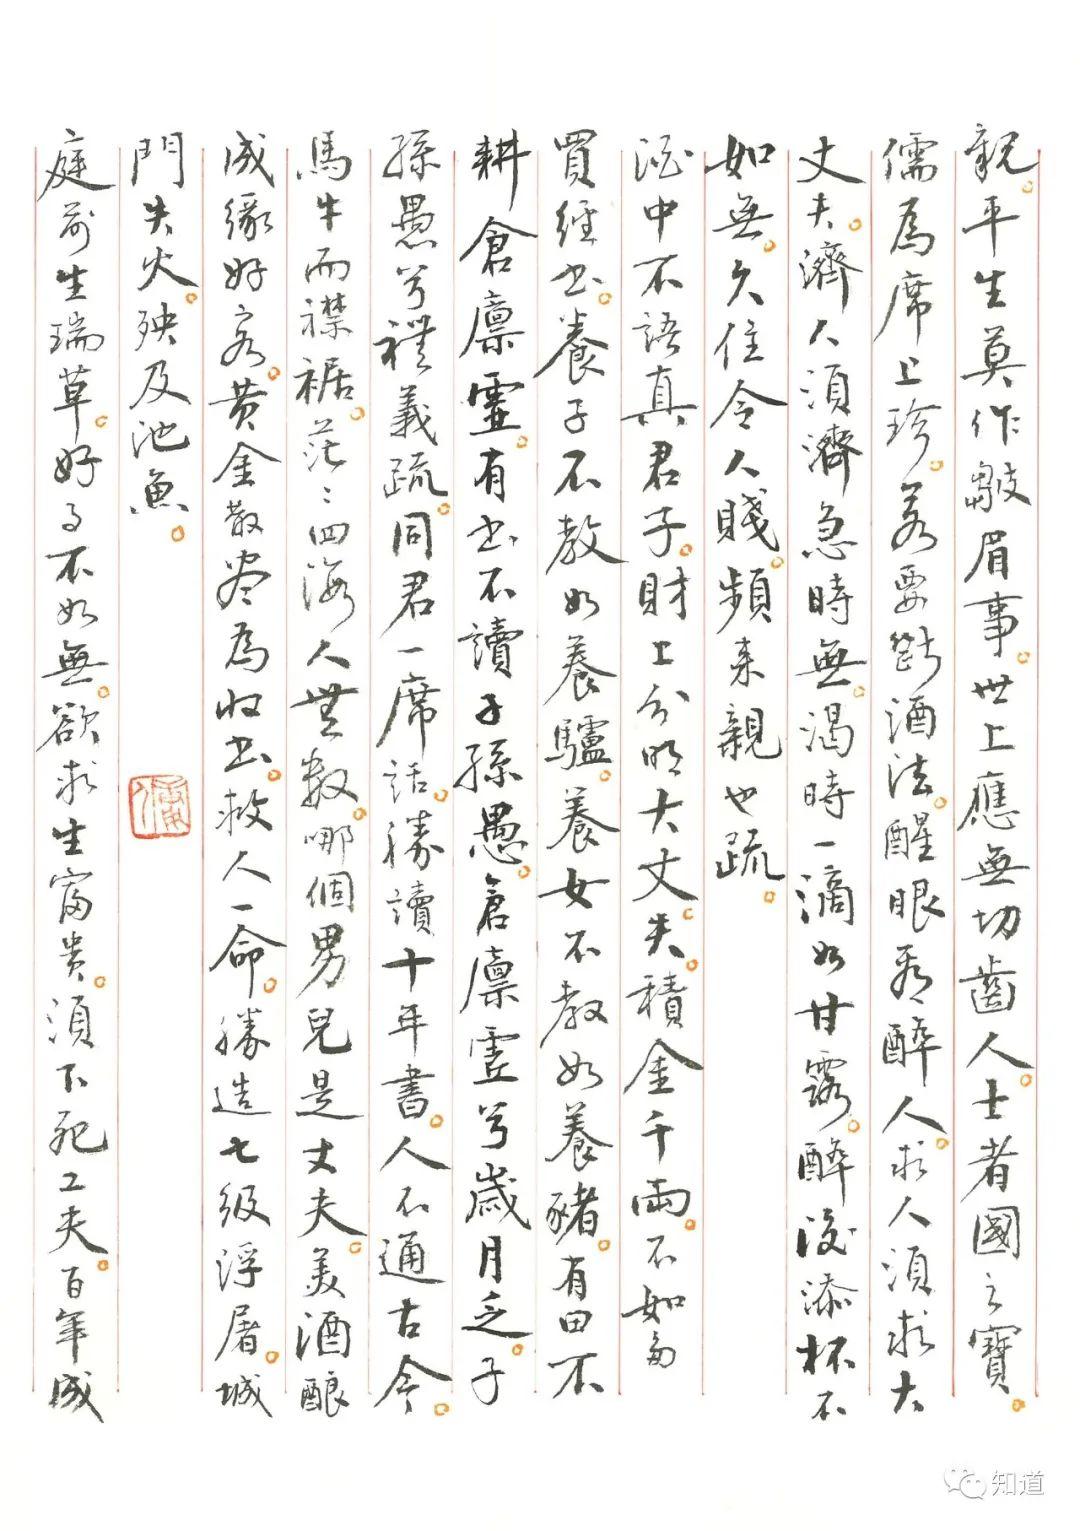 親。平生莫作皺眉事。世上應無切齒人。士者國之寶。
儒為席上珍。若要斷酒法。醒眼看醉人。求人須求大
丈夫。濟人須濟急時無。渴時一滴如甘露。醉後添杯不
如無。久住令人賤。頻來親也疏。
酒中不語真君子。財上分明大丈夫。積金千兩。不如多
買經書。養子不教如養驢。養女不教如養豬。有田不
耕倉廩虛。有書不讀子孫愚。倉廩虛兮歲月乏。子
孫愚兮禮義疏。同君一席話。勝讀十年書。人不通古今。
馬牛而襟裾。茫々四海人無數。哪個男兒是丈夫。美酒釀
成緣好客。黃金散尽為收書。救人一命。勝造七級浮屠。城
門失火。殃及池魚。
庭前生瑞草。好事不如無。欲求生富貴。須下死工夫。百年成
知道